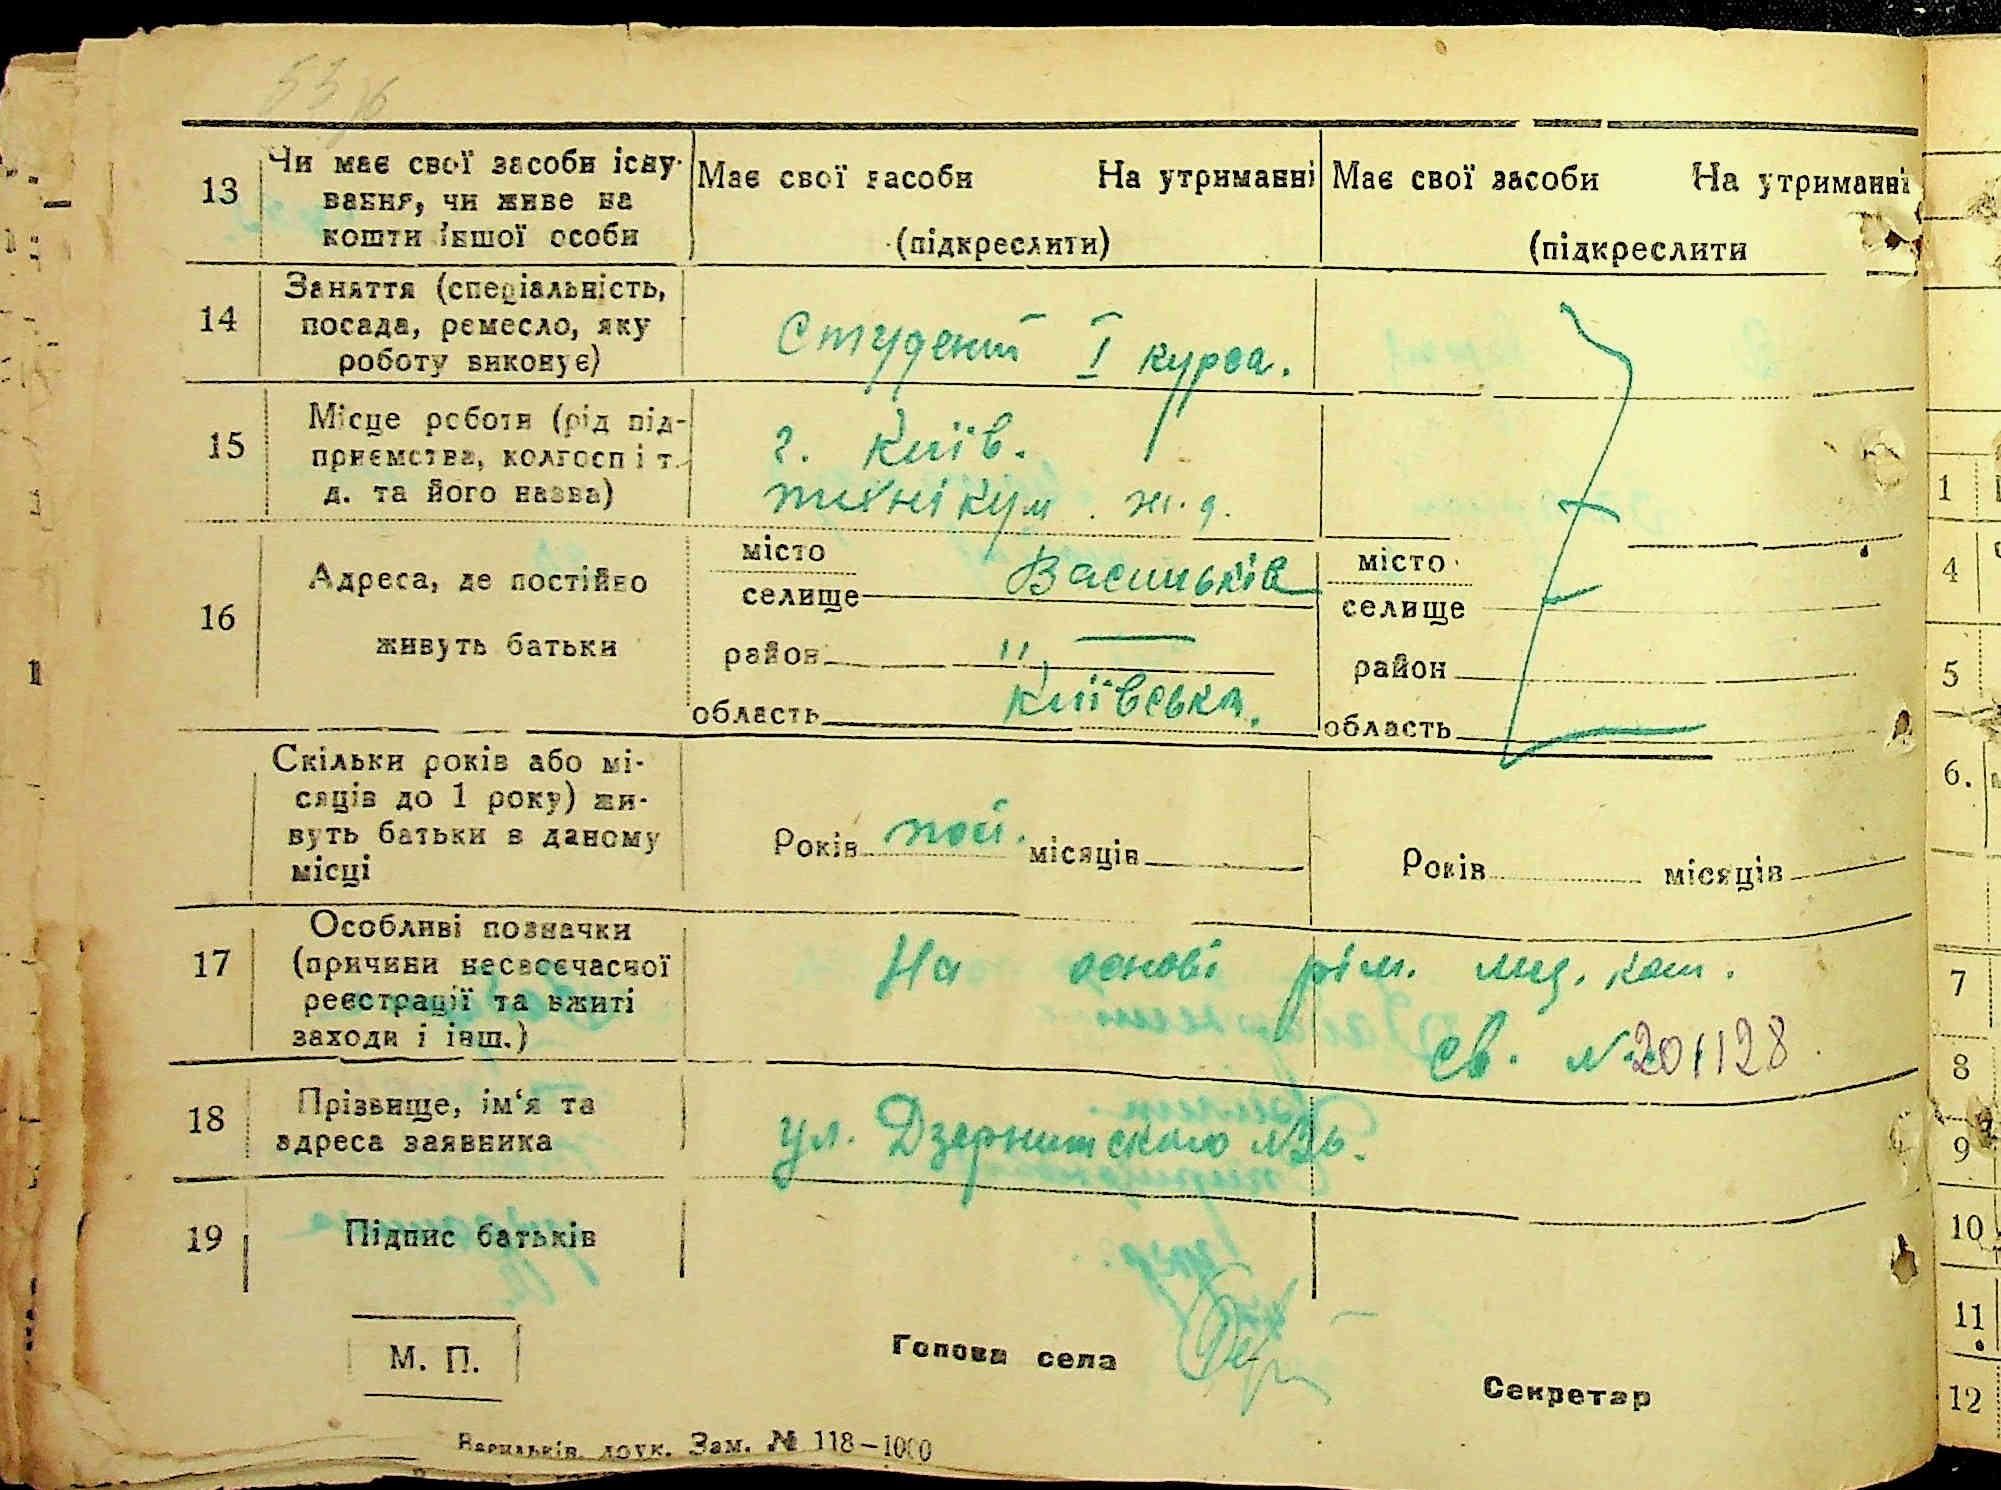 53
13 Чи має свої засоби існу- Має свої засоби На утриманні Має свої засоби На утриманні
вання, чи живе на
кошти іншої особи (підкреслити) (підкреслити
14 Заняття (спеціальність,
посада, ремесло, яку Студент I курса.
роботу виконує)
15 Місце роботи (рід під-
приємства, колгосп і т. г. Київ.
д. та його назва) технікум ж.д.
16 Адреса, де постійно
живуть батьки
місто
селище Васильків
район " —
область Київська.
місто
селище
район
область
Скільки років або мі-
сяців до 1 року) жи-
вуть батьки в даному
місці
Років пост. місяців
Років місяців
17 Особливі позначки
(причини несвоєчасної
реєстрації та вжиті
заходи і інш.)
На основі мед.
св. № 201128
18 Прізвище, ім'я та
адреса заявника
ул. Дзержинского №
19 Підпис батьків
М. П.
Голова села
Секретар
Васильків. друк. Зам. № 118–1000
1
4
5
6.
7
8
9
10
11
12